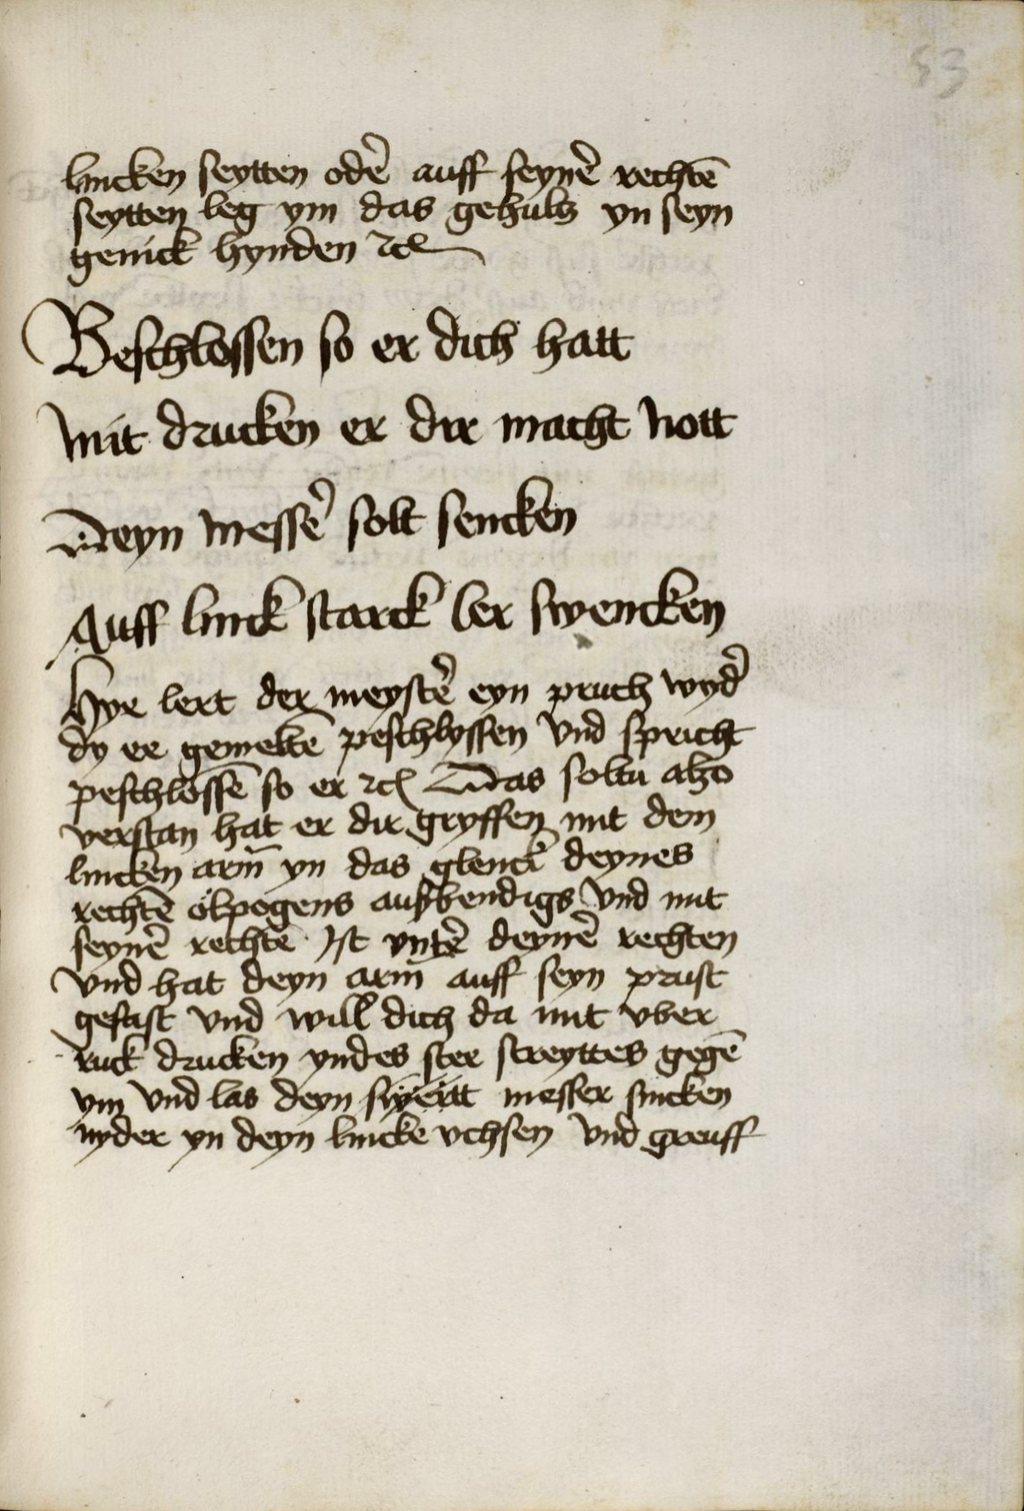 53
lincken seytten oder̃ auff seyner̃ rechtē
seytten leg ym das gehultz yn seyn
genick hynden ꝛcͣ
Beschlossen so er dich hatt
mit drucken er dir macht nott
Deyn messer̃ solt sencken
Auff linck starck ler swencken
Hye lert der meyster̃ eyn pruch wyder̃
dy ee gemeltē peschlyssen vnd spricht
peschlossē so er ꝛcͣ Das soltu alzo
verstan hat er dir gryffen mit dem
lincken arm̄ yn das glenck deynes
rechtē ölpogens außbendigs vnd mit
seynē rechtē Ist vnter̃ deynē rechten
vnd hat deyn arm̄ auff seyn prust
gefast vnd will dich da mit vber
ruck drucken yndes stee streyttes gegē
ym vnd las deyn swertt messer sincken
nyder yn deyn lincke vchsen vnd greuff